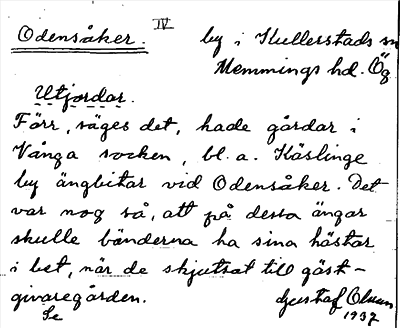 Odensåker. IV by i Kullerstads sn
Memmings hd. Ög.
Utjordar.
Förr, säges det, hade gårdar i
Vånga socken, bl. a. Käslinge
by ängbitar vid Odensåker. Det
var nog så, att på dessa ängar
skulle bönderna ha sina hästar
i bet, när de skjutsat till gäst-
givaregården. Gustaf
Se 1937